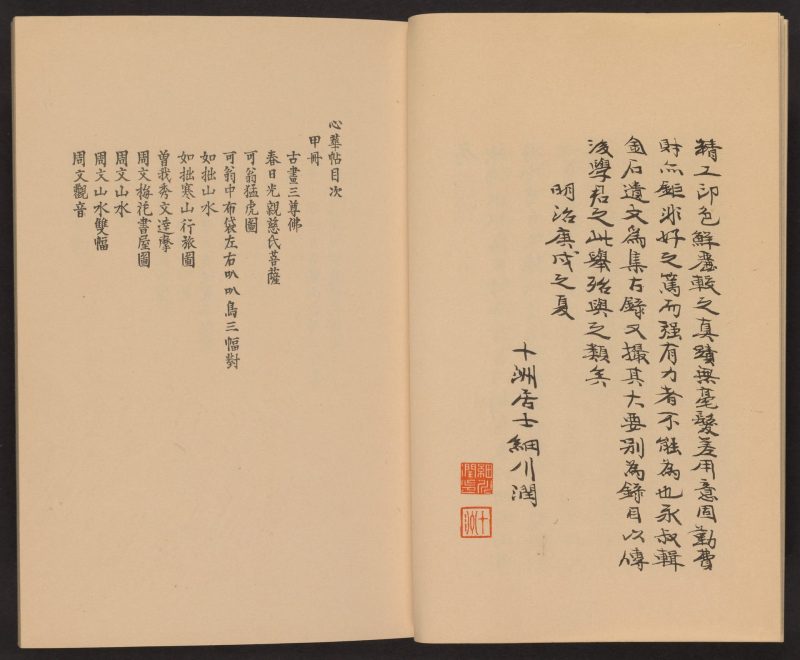 精工印色鮮麗較之真蹟無毫髮差用意固勤費
財亦鉅非好之篤而强有力者不能為也永叔輯
金石遺文為集古錄又撮其大要別為錄目以傳
後學君之此舉殆與之類矣
明治庚戌之夏
十洲居士細川潤
細川潤
十洲
心華帖目次
甲冊
古畫三尊佛
春日光親慈氏菩薩
可翁猛虎圖
可翁中布袋左右叭叭鳥三幅對
如拙山水
如拙寒山行旅圖
曾我秀文達摩
周文梅花書屋圖
周文山水
周文山水雙幅
周文觀音